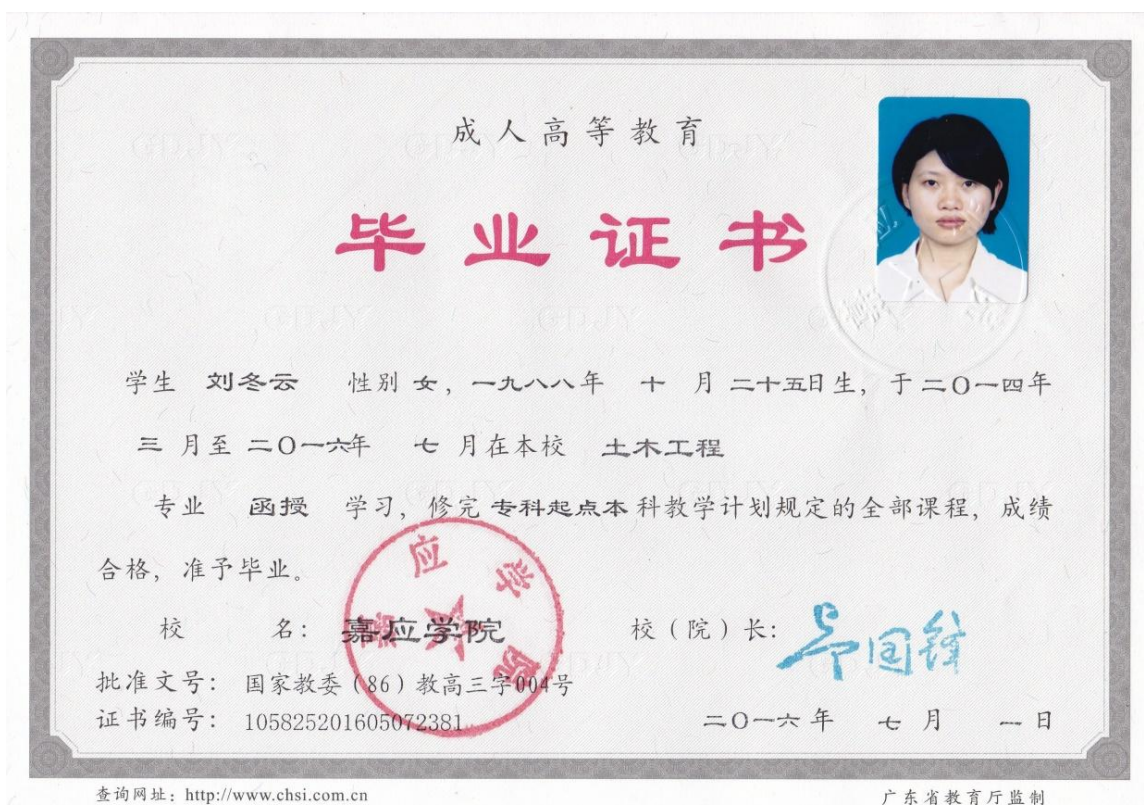 成人高等教育
毕业证书
学生 刘冬云 性别 女，一九八八年 十 月 二十五日生，于 二〇一四年
三 月至 二〇一六年 七 月在本校 土木工程
专业 函授 学习，修完 专科起点本 科教学计划规定的全部课程，成绩
合格，准予毕业。
校 名：嘉应学院 校（院）长：
批准文号：国家教委（86）教高三字004号
证书编号：105825201605072381 二〇一六 年 七 月 一 日
嘉应学院
查询网址：http://www.chsi.com.cn 广东省教育厅监制